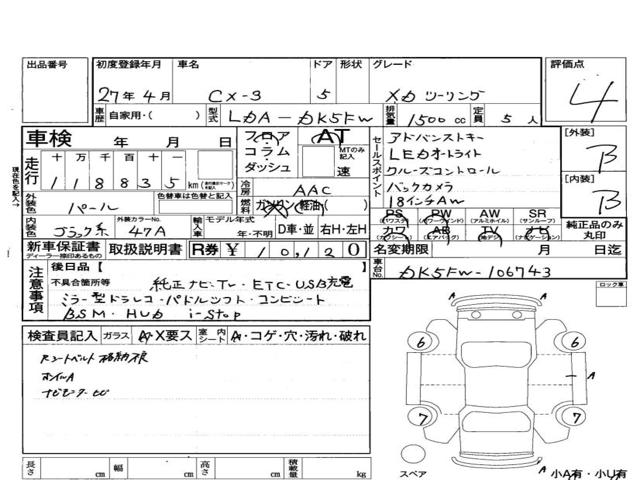 出品番号 初度登録年月 車名 ドア 形状 グレード 評価点
27年4月 CX-3 5 XDツーリング 4
車歴 自家用・( ) 型式 LDA-DK5FW 排気量 1500cc 定員 5人
車検 年 月 日 フロア コラム ダッシュ AT MTのみ記入 速
走行 十 万 千 百 十
1 1 8 8 3 5 km
冷房 AAC
外装色 パール 色替車は色替と記入 燃料 ガソリン 軽油( )
内装色 ブラック系 外装カラーNo. 47A 輸入車 モデル年式 年・不明 D車・並 右H・左H
セールスポイント アドバンストキー
LEDオートライト
クルーズコントロール
バックカメラ
18インチAW
[外装] B
[内装] B
PS PW AW SR
(パワステ) (パワーウインド) (アルミホイル) (サンルーフ)
カワ AB TV ナビ
純正品のみ丸印
現在色を記入→
新車保証書 取扱説明書 R券 ¥ 10,120
ディーラー捺印あるもの
名変期限 月 日迄
車台No. DK5FW-106743
ロック車
注意事項 後日品[ ]
不具合箇所等 純正ナビ・TV・ETC・USB充電
ミラー型ドラレコ・パドルシフト・コンビシート
BSM・HUD i-stop
検査員記入 ガラス A・X要ス 室内シート A・コゲ・穴・汚れ・破れ
Rシートベルト格納不良
ホイルA
6 6
A
7 7
A
スペア
小A有・小U有
長さ cm 幅 cm 高さ cm 積載量 kg